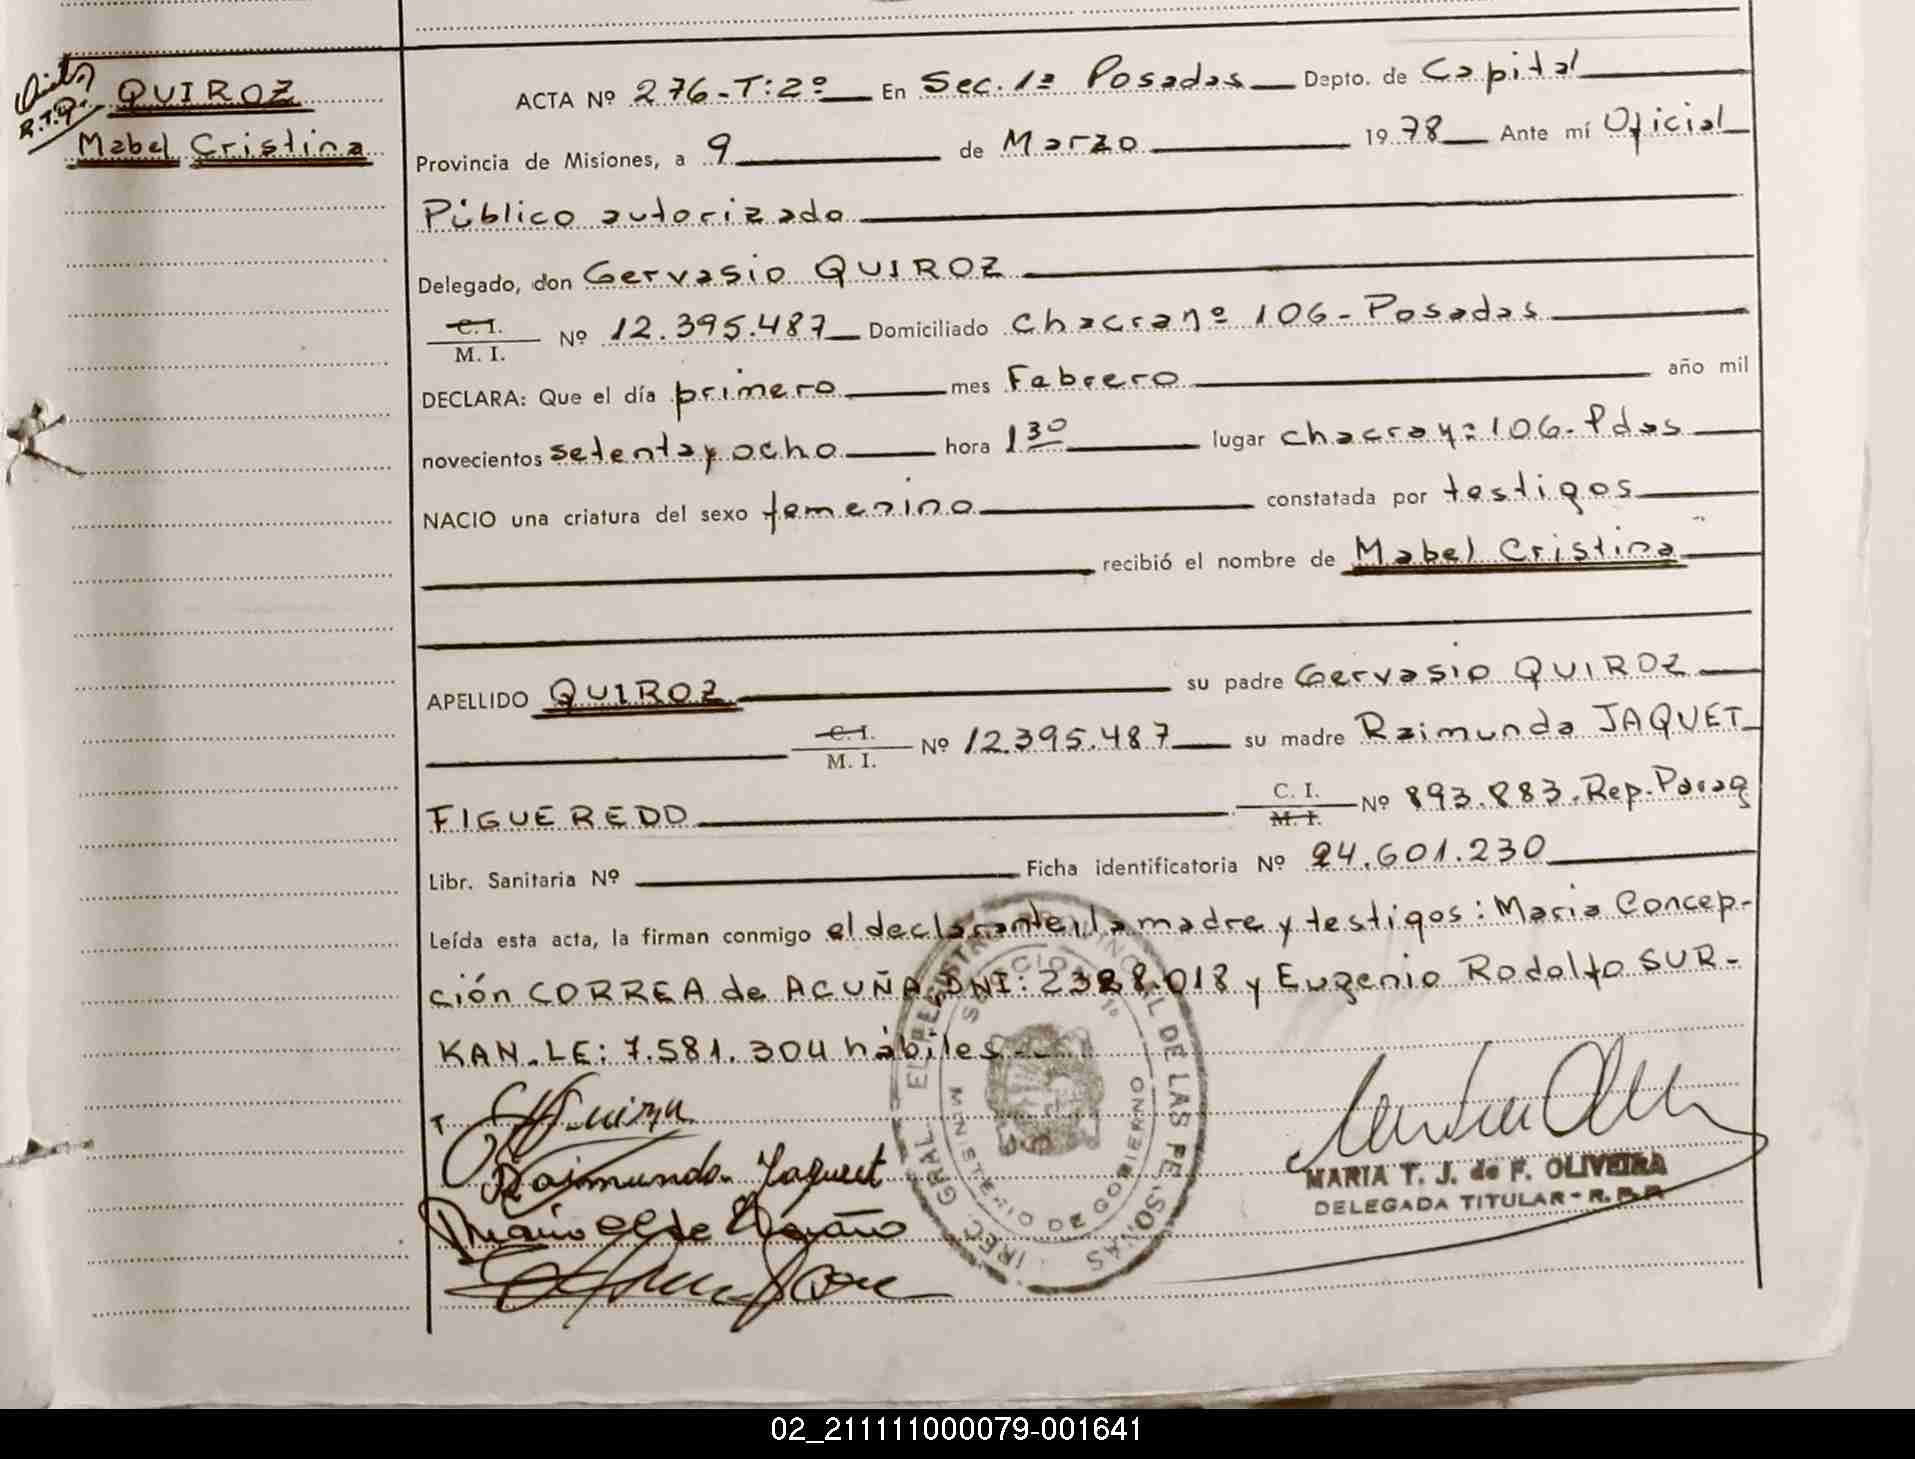 QUIROZ
Mabel Cristina
R.T.P.
ACTA Nº 276-T:2º En Sec. 1ª Posadas Depto. de Capital
Provincia de Misiones, a 9 de Marzo 1978 Ante mí Oficial
Público autorizado
Delegado, don Gervasio QUIROZ
C.I. M. I. Nº 12.395.487 Domiciliado chacra nº 106-Posadas
DECLARA: Que el día primero mes Febrero año mil
novecientos setenta y ocho hora 1 30 lugar chacra nº 106-Pdas
NACIO una criatura del sexo femenino constatada por testigos
recibió el nombre de Mabel Cristina
APELLIDO QUIROZ su padre Gervasio QUIROZ
C.I. M. I. Nº 12.395.487 su madre Raimunda JAQUET
FIGUEREDO C. I. M. I. Nº 893.883.Rep.Parag
Libr. Sanitaria Nº Ficha identificatoria Nº 24.601.230
Leída esta acta, la firman conmigo el declarante, la madre y testigos: Maria Concep-
ción CORREA de ACUÑA DNI: 2328.018 y Eugenio Rodolfo SUR-
KAN.LE: 7.581.304 hábiles.-
Raimunda Jaquet
MARIA T. J. de F. OLIVEIRA
DELEGADA TITULAR - R. P. P.
SECCION 1º
MINISTERIO DE GOBIERNO
02_211111000079-001641